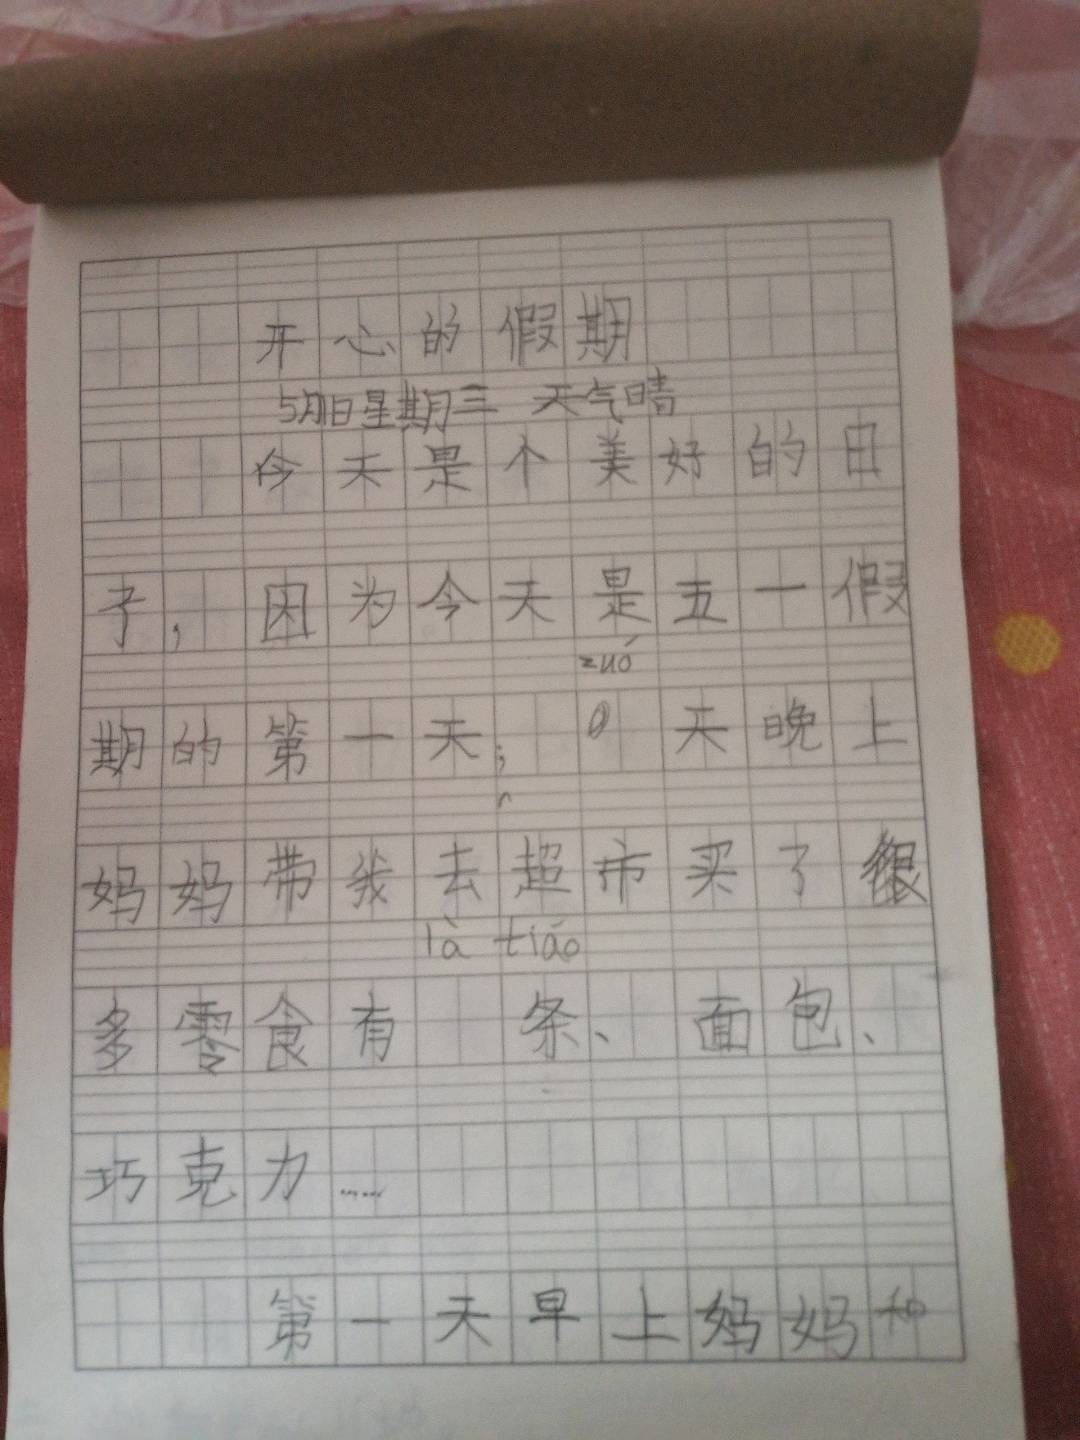 开心的假期
5月1日星期三 天气晴
今天是个美好的日
子，因为今天是五一假
zuó
期的第一天； 天晚上
妈妈带我去超市买了很
là tiáo
多零食有 条、面包、
巧克力……
第一天早上妈妈和